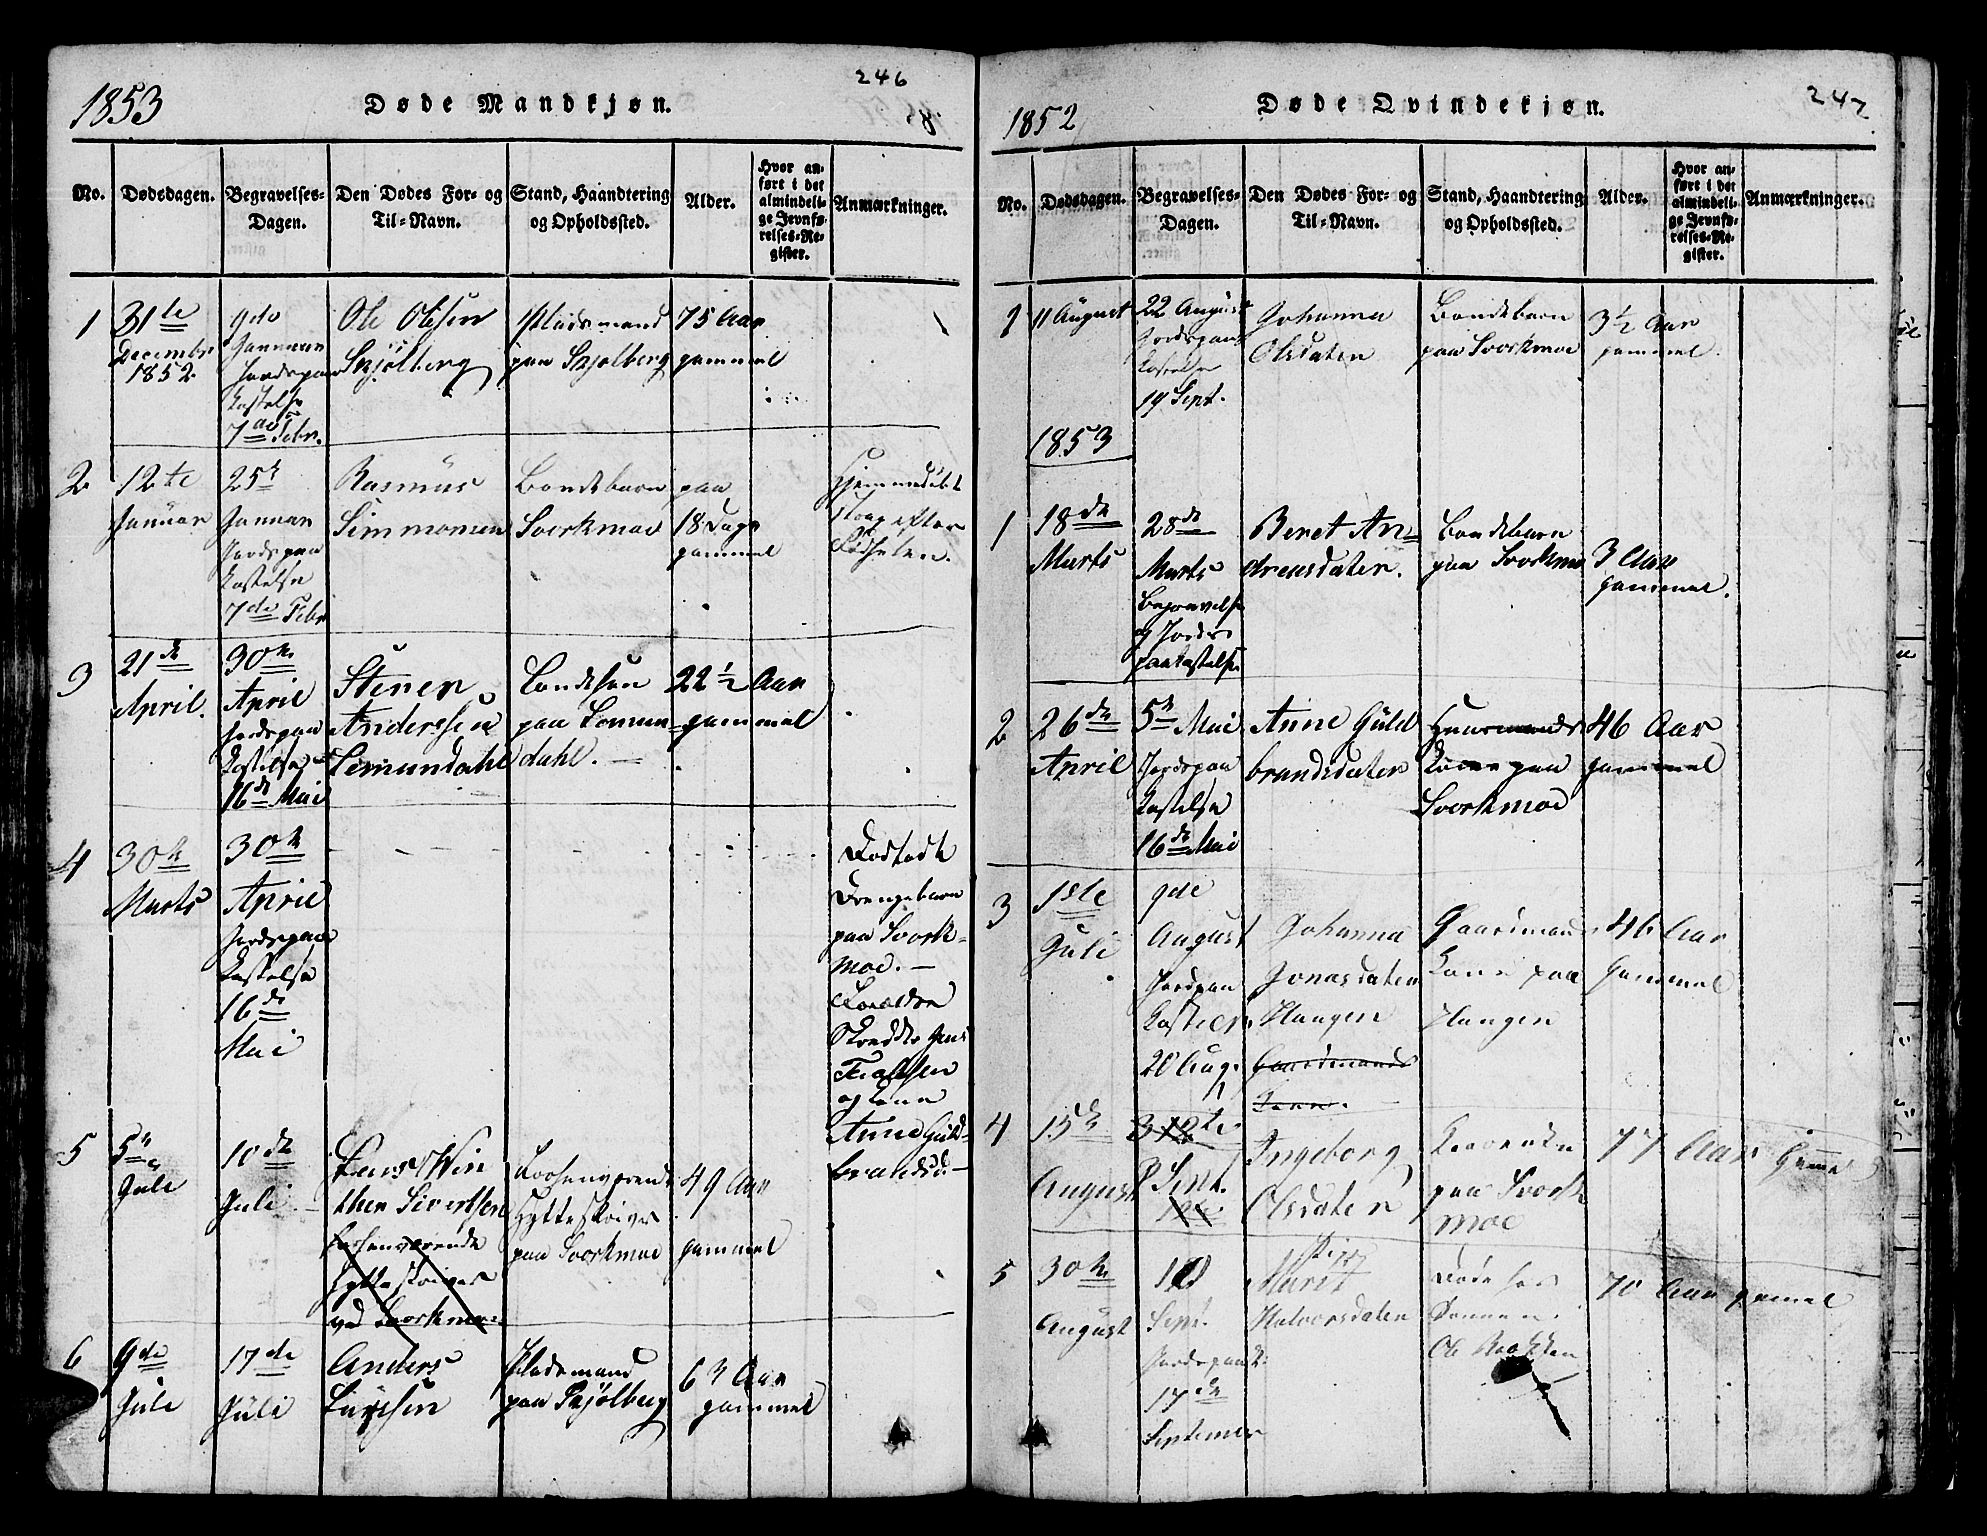 246
1853
Døde Mandkjøn.
No.
Dødsdagen.
Begravelses-
Dagen.
Den Dødes For- og
Til-Navn.
Stand, Haandtering
og Opholdssted.
Alder.
Hvor an-
ført i det
almindeli-
ge Jevnfø-
relses-Re-
gister.
Anmærkninger.
1
31te
Decembr
1852.
9de
Januar
Jordspaa
Kastelse
7de Febr.
Ole Olsen
Skjølberg
Pladsmand
paa Skjølberg
75 Aar
gammel
2
12te
Januar
25de
Januar
Jordspaa
Kastelse
7de Febr
Rasmus
Simmonsen
Bondebarn
Svorkmoe
paa
18 Dage
gammel
Hjemmedøbt
strax efter
Fødselen.
3
21de
April.
30te
April
Jordspaa
Kastelse
16de Mai
Stener
Anderssen
Lomundahl
Bondesøn
paa Lomun-
dahl.
22 1/2 Aar
gammel
4
30te
Marts
30te
April
Jordspaa
Kastelse
16de
Mai
Dødfødt
Drengebarn
paa Svork-
moe. —
Forældre
Skrædder Jens
og Kone
Anne Guld-
brandsd. —
5
5te
Juli
10de
Juli
Lars Win
ther Sivertsen
forhenværende
Hytteskriver
ved Svorkmoe
Forhenværende
Hytteskriver
paa Svorkmoe
49 Aar
gammel
6
9de
Juli
17de
Juli
Anders
Larsen
Pladsmand
paa Skjølberg
63 Aar
gammel
247
1852
Døde Qvindekjøn.
No.
Dødsdagen.
Begravelses-
Dagen.
Den Dødes For- og
Til-Navn.
Stand, Haandtering
og Opholdssted.
Alder.
Hvor an-
ført i det
almindeli-
ge Jevnfø-
relses-Re-
gister.
Anmærkninger.
1
11 August
22 August
Jordspaa
Kastelse
19 Sept.
Johanna
Olsdaten
Bondebarn
paa Svorkmoe
3 1/2 Aar
gammel.
1853
1
18de
Marts
28de
Marts
Begravelse
og Jords
paakastelse
Beret An-
dreasdaten.
Bondebarn
paa Svorkmoe
3 Aar
gammel.
2
26de
April
5te Mai
Jordspaa
Kastelse
16de Mai
Anne Guld
brandsdaten
Huusmands
Kone paa
Svorkmoe
46 Aar
gammel
3
1ste
Juli
9de
August
Jordpaa
Kastelse
20 Aug.
Johanna
Jonasdaten
Haugen
Gaardmands
Kone.
Gaardmands
Kone paa
Haugen
46 Aar
gammel
4
15de
August
Sept.
Ingeborg
Olsdaten
paa Svork
moe
77 Aar
5
30te
August
Sept.
Jordspaa K.
17de
September
Marit
Halvorsdaten
70 Aar gamel